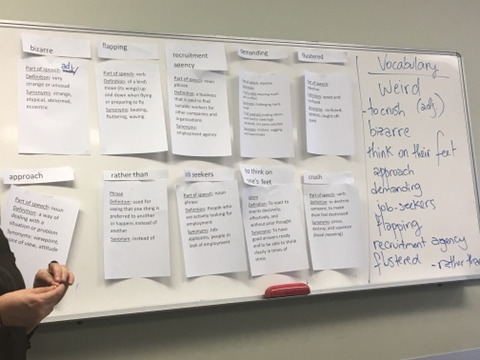 bizarre
Part of speech: adj
Definition: very
strange or unusual
Synonyms: strange,
atypical, abnormal,
eccentric
flapping
Part of speech: verb
Definition: (of a bird)
move (its wings) up
and down when flying
or preparing to fly
Synonyms: beating,
fluttering, waving
recruitment
agency
Part of speech: noun
phrase
Definition: a business
that is paid to find
suitable workers for
other companies and
organisations
Synonyms:
employment agency
demanding
flustered
approach
Part of speech: noun
Definition: a way of
dealing with a
situation or problem
Synonyms: viewpoint,
point of view, attitude
rather than
Phrase
Definition: used for
saying that one thing is
preferred to another
or happens instead of
another
Synonyms: instead of
job seekers
Part of speech: noun
phrase
Definition: People who
are actually looking for
employment
Synonyms: Job
applicants, people in
need of employment
to think on
one's feet
Idiom
Definition: To react to
events decisively,
effectively, and
without prior thought
Synonyms: To have
good answers ready
and to be able to think
clearly in times of
stress
crush
Part of speech: verb
Definition: to
someone, to make
them feel
Vocabulary
Weird
-to crush (adj)
bizarre
think on their feet
approach
demanding
job-seekers
flapping
recruitment agency
flustered -rather than